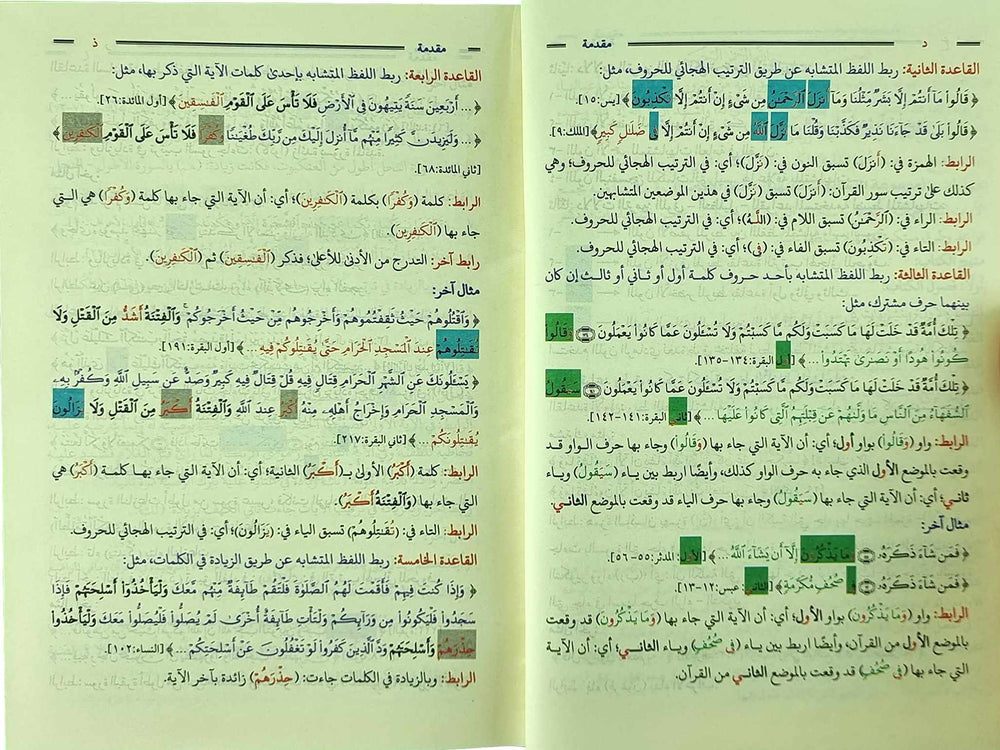 د
مقدمة
القاعدة الثانية: ربط اللفظ المتشابه عن طريق الترتيب الهجائي للحروف، مثل:
﴿ قَالُوا۟ مَآ أَنتُمْ إِلَّا بَشَرٌ مِّثْلُنَا وَمَآ أَنزَلَ ٱلرَّحْمَـٰنُ مِن شَىْءٍ إِنْ أَنتُمْ إِلَّا تَكْذِبُونَ ﴾ [يس:١٥].
﴿ قَالُوا۟ بَلَىٰ قَدْ جَآءَنَا نَذِيرٌ فَكَذَّبْنَا وَقُلْنَا مَا نَزَّلَ ٱللَّهُ مِن شَىْءٍ إِنْ أَنتُمْ إِلَّا فِى ضَلَـٰلٍ كَبِيرٍ ﴾ [الملك:٩].
الرابط: الهمزة في: (أَنزَلَ) تسبق النون في: (نَزَّلَ)؛ أي: في الترتيب الهجائي للحروف؛ وهي
كذلك على ترتيب سور القرآن: (أَنزَلَ) تسبق (نَزَّلَ) في هذين الموضعين المتشابهين.
الرابط: الراء في: (ٱلرَّحْمَـٰنُ) تسبق اللام في: (ٱللَّهُ)؛ أي: في الترتيب الهجائي للحروف.
الرابط: التاء في: (تَكْذِبُونَ) تسبق الفاء في: (فِى)؛ أي: في الترتيب الهجائي للحروف.
القاعدة الثالثة: ربط اللفظ المتشابه بأحد حروف كلمة أول أو ثاني أو ثالث إن كان
بينهما حرف مشترك، مثل:
﴿ تِلْكَ أُمَّةٌ قَدْ خَلَتْ لَهَا مَا كَسَبَتْ وَلَكُم مَّا كَسَبْتُمْ وَلَا تُسْـَٔلُونَ عَمَّا كَانُوا۟ يَعْمَلُونَ ۝ وَقَالُوا۟
كُونُوا۟ هُودًا أَوْ نَصَـٰرَىٰ تَهْتَدُوا۟ ...﴾ [أول البقرة:١٣٤-١٣٥].
﴿ تِلْكَ أُمَّةٌ قَدْ خَلَتْ لَهَا مَا كَسَبَتْ وَلَكُم مَّا كَسَبْتُمْ وَلَا تُسْـَٔلُونَ عَمَّا كَانُوا۟ يَعْمَلُونَ ۝ سَيَقُولُ
ٱلسُّفَهَآءُ مِنَ ٱلنَّاسِ مَا وَلَّىٰهُمْ عَن قِبْلَتِهِمُ ٱلَّتِى كَانُوا۟ عَلَيْهَا ...﴾ [ثاني البقرة:١٤١-١٤٢].
الرابط: واو (وَقَالُوا۟) بواو أول؛ أي: أن الآية التي جاء بها (وَقَالُوا۟) وجاء بها حرف الواو قد
وقعت بالموضع الأول الذي جاء به حرف الواو كذلك، وأيضًا اربط بين يـاء (سَيَقُولُ) ويـاء
ثاني؛ أي: أن الآية التي جاء بها (سَيَقُولُ) وجاء بها حرف الياء قد وقعت بالموضع الثاني.
مثال آخر:
﴿ فَمَن شَآءَ ذَكَرَهُۥ ۝ وَمَا يَذْكُرُونَ إِلَّآ أَن يَشَآءَ ٱللَّهُ ...﴾ [الأول: المدثر:٥٥-٥٦].
﴿ فَمَن شَآءَ ذَكَرَهُۥ ۝ فِى صُحُفٍ مُّكَرَّمَةٍ ﴾ [الثاني: عبس:١٢-١٣].
الرابط: واو (وَمَا يَذْكُرُونَ) بواو الأول؛ أي: أن الآية التي جاء بها (وَمَا يَذْكُرُونَ) قد وقعت
بالموضع الأول من القرآن، وأيضًا اربط بين ياء (فِى صُحُفٍ) وياء الثاني؛ أي: أن الآيـة
التي جاء بها (فِى صُحُفٍ) قد وقعت بالموضع الثاني من القرآن.
مقدمة
ذ
القاعدة الرابعة: ربط اللفظ المتشابه بإحدى كلمات الآية التي ذكر بها، مثل:
﴿ ... أَرْبَعِينَ سَنَةً يَتِيهُونَ فِى ٱلْأَرْضِ فَلَا تَأْسَ عَلَى ٱلْقَوْمِ ٱلْفَـٰسِقِينَ ﴾ [أول المائدة:٢٦].
﴿ ... وَلَيَزِيدَنَّ كَثِيرًا مِّنْهُم مَّآ أُنزِلَ إِلَيْكَ مِن رَّبِّكَ طُغْيَـٰنًا وَكُفْرًا فَلَا تَأْسَ عَلَى ٱلْقَوْمِ ٱلْكَـٰفِرِينَ ﴾
[ثاني المائدة:٦٨].
الرابط: كلمة (وَكُفْرًا) بكلمة (ٱلْكَـٰفِرِينَ)؛ أي: أن الآية التي جاء بها كلمة (وَكُفْرًا) هي التـي
جاء بها (ٱلْكَـٰفِرِينَ).
رابط آخر: التدرج من الأدنى للأعلى؛ فذكر (ٱلْفَـٰسِقِينَ) ثم (ٱلْكَـٰفِرِينَ).
مثال آخر:
﴿ وَٱقْتُلُوهُمْ حَيْثُ ثَقِفْتُمُوهُمْ وَأَخْرِجُوهُم مِّنْ حَيْثُ أَخْرَجُوكُمْ ۚ وَٱلْفِتْنَةُ أَشَدُّ مِنَ ٱلْقَتْلِ وَلَا
تُقَـٰتِلُوهُمْ عِندَ ٱلْمَسْجِدِ ٱلْحَرَامِ حَتَّىٰ يُقَـٰتِلُوكُمْ فِيهِ ...﴾ [أول البقرة:١٩١].
﴿ يَسْـَٔلُونَكَ عَنِ ٱلشَّهْرِ ٱلْحَرَامِ قِتَالٍ فِيهِ قُلْ قِتَالٌ فِيهِ كَبِيرٌ وَصَدٌّ عَن سَبِيلِ ٱللَّهِ وَكُفْرٌۢ بِهِۦ
وَٱلْمَسْجِدِ ٱلْحَرَامِ وَإِخْرَاجُ أَهْلِهِۦ مِنْهُ أَكْبَرُ عِندَ ٱللَّهِ وَٱلْفِتْنَةُ أَكْبَرُ مِنَ ٱلْقَتْلِ وَلَا يَزَالُونَ
يُقَـٰتِلُونَكُمْ ...﴾ [ثاني البقرة:٢١٧].
الرابط: كلمة (أَكْبَرُ) الأولى بـ(أَكْبَرُ) الثانية؛ أي: أن الآية التي جاء بهـا كلمـة (أَكْبَرُ) هي
التي جاء بها (وَٱلْفِتْنَةُ أَكْبَرُ).
الرابط: التاء في: (تُقَـٰتِلُوهُمْ) تسبق الياء في: (يَزَالُونَ)؛ أي: في الترتيب الهجائي للحروف.
القاعدة الخامسة: ربط اللفظ المتشابه عن طريق الزيادة في الكلمات، مثل:
﴿ وَإِذَا كُنتَ فِيهِمْ فَأَقَمْتَ لَهُمُ ٱلصَّلَوٰةَ فَلْتَقُمْ طَآئِفَةٌ مِّنْهُم مَّعَكَ وَلْيَأْخُذُوٓا۟ أَسْلِحَتَهُمْ فَإِذَا
سَجَدُوا۟ فَلْيَكُونُوا۟ مِن وَرَآئِكُمْ وَلْتَأْتِ طَآئِفَةٌ أُخْرَىٰ لَمْ يُصَلُّوا۟ فَلْيُصَلُّوا۟ مَعَكَ وَلْيَأْخُذُوا۟
حِذْرَهُمْ وَأَسْلِحَتَهُمْ وَدَّ ٱلَّذِينَ كَفَرُوا۟ لَوْ تَغْفُلُونَ عَنْ أَسْلِحَتِكُمْ ...﴾ [النساء:١٠٢].
الرابط: وبالزيادة في الكلمات جاءت: (حِذْرَهُمْ) زائدة بآخر الآية.